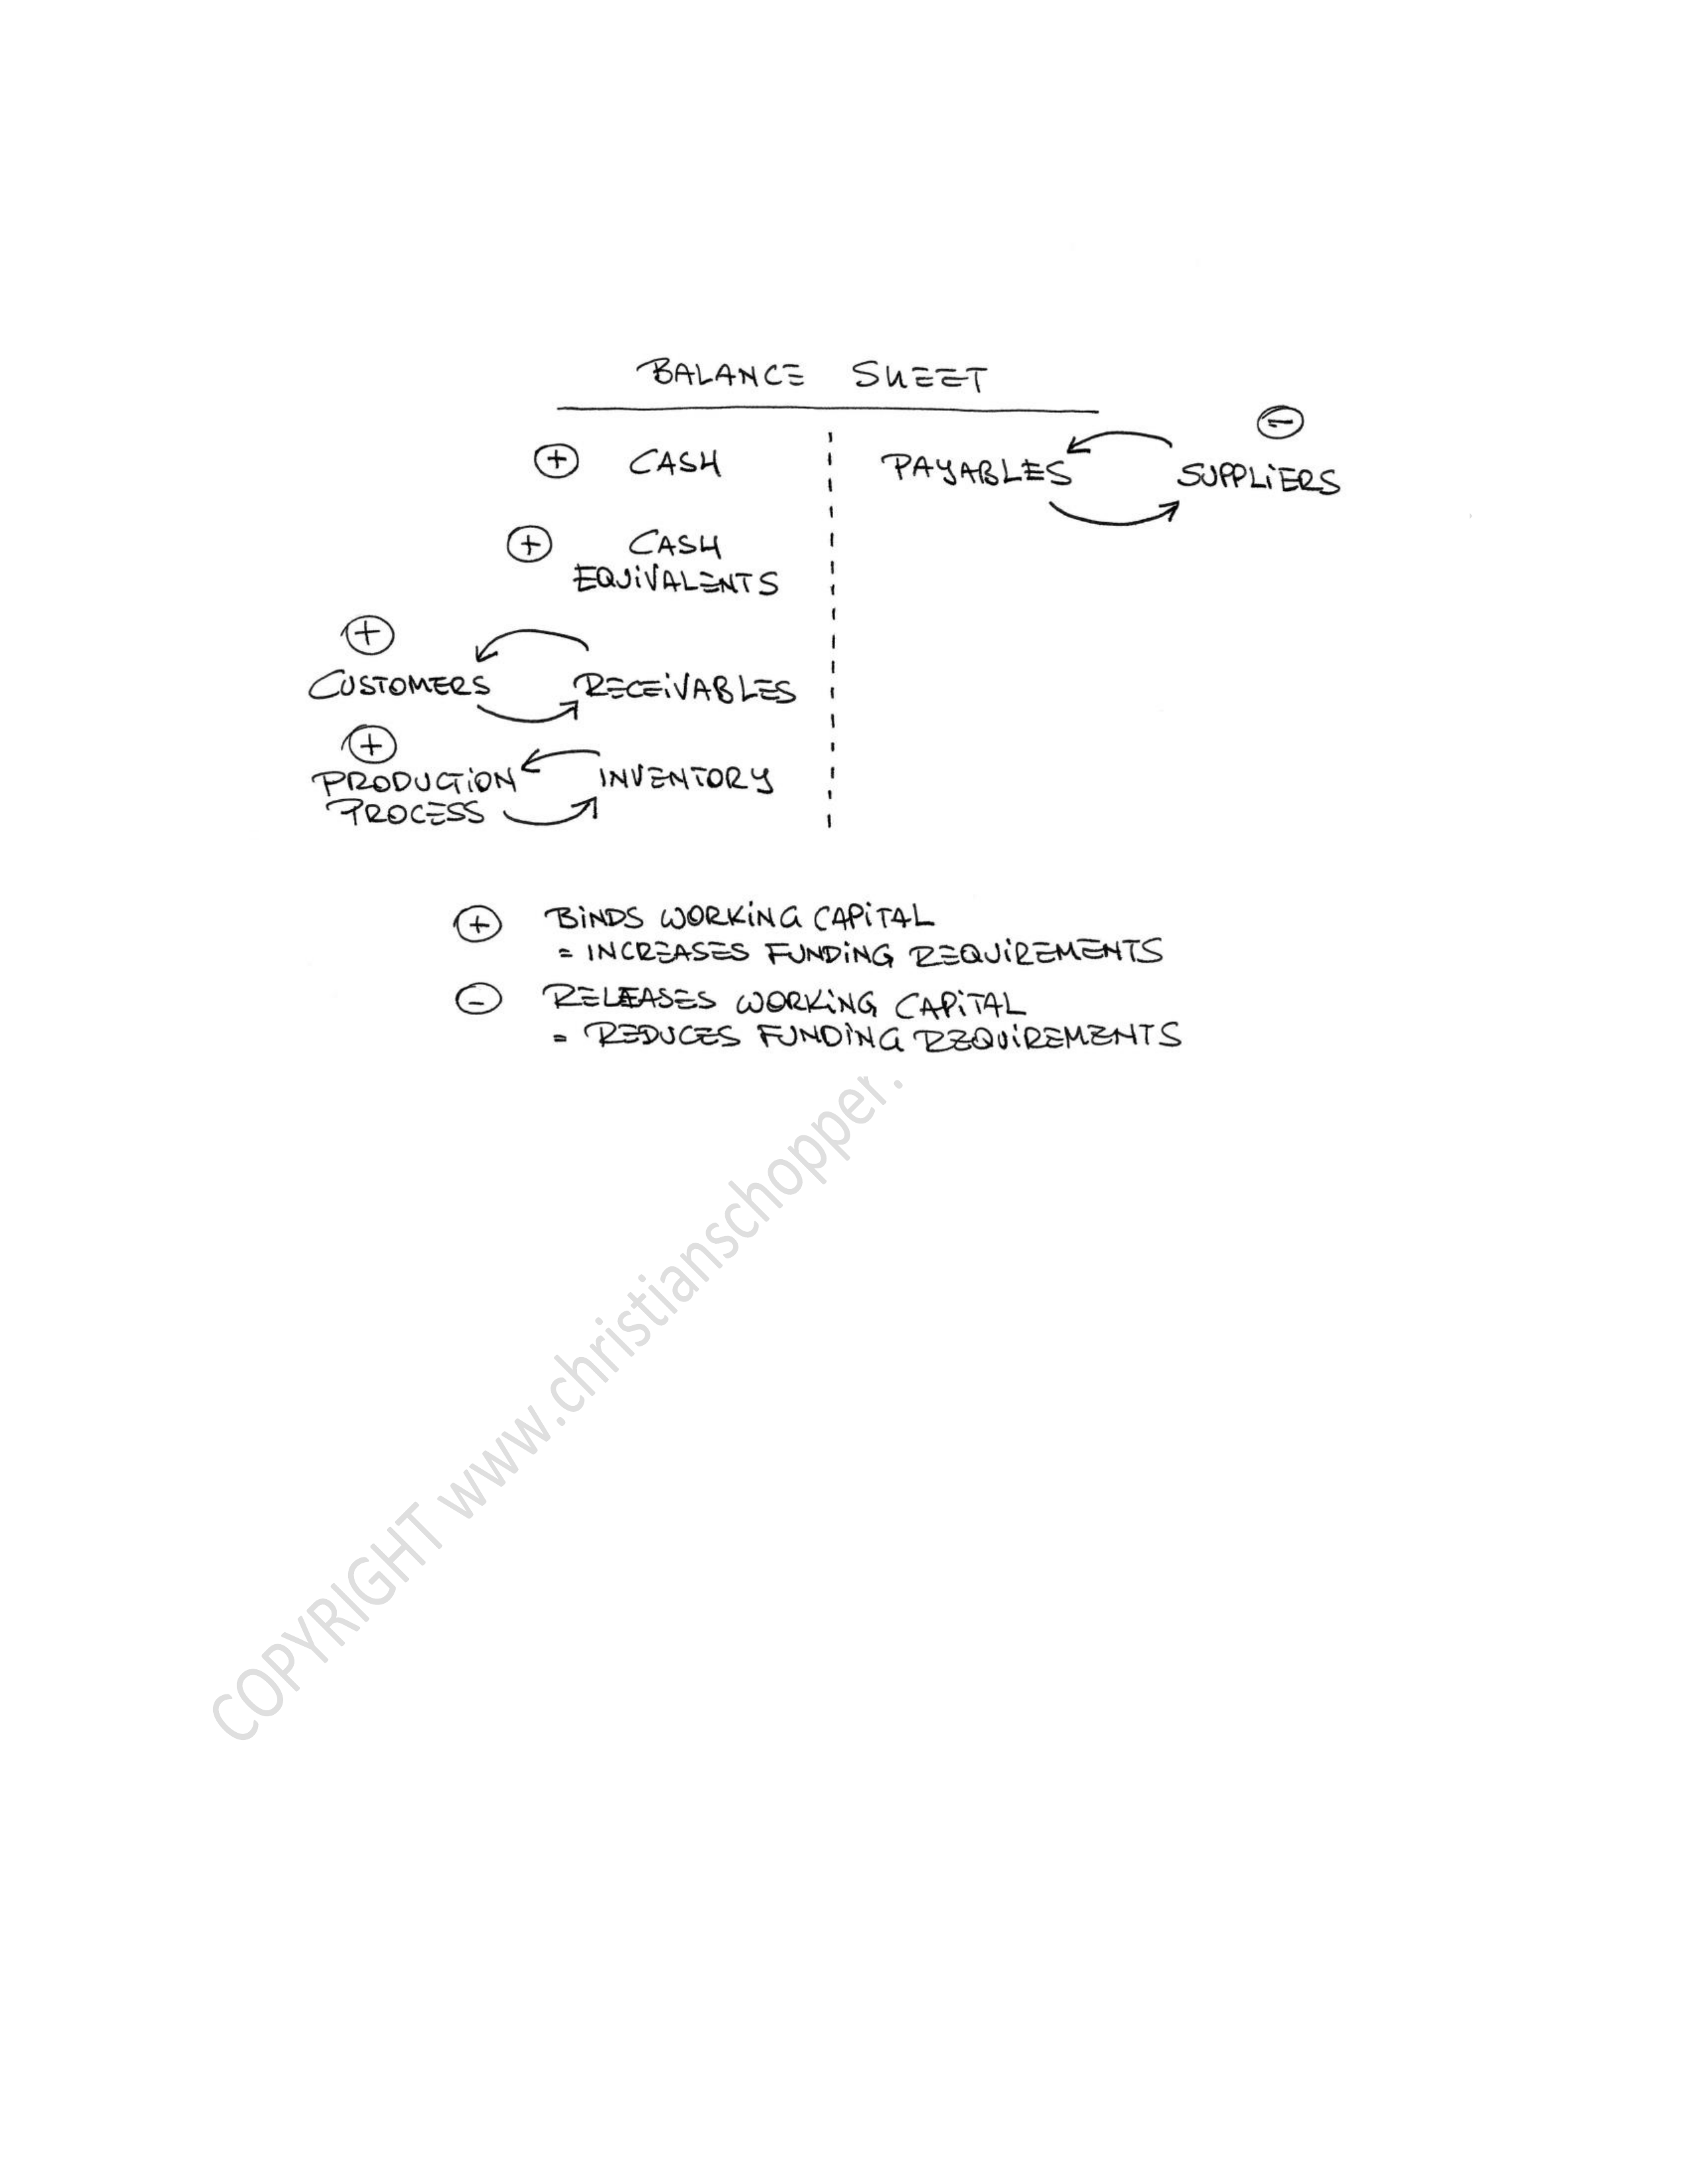 BALANCE SHEET
⊕ CASH
PAYABLES
⊖
SUPPLIERS
⊕ CASH
EQUIVALENTS
⊕
CUSTOMERS RECEIVABLES
⊕
PRODUCTION INVENTORY
PROCESS
⊕ BINDS WORKING CAPITAL
= INCREASES FUNDING REQUIREMENTS
⊖ RELEASES WORKING CAPITAL
= REDUCES FUNDING REQUIREMENTS
COPYRIGHT www.christianschopper.